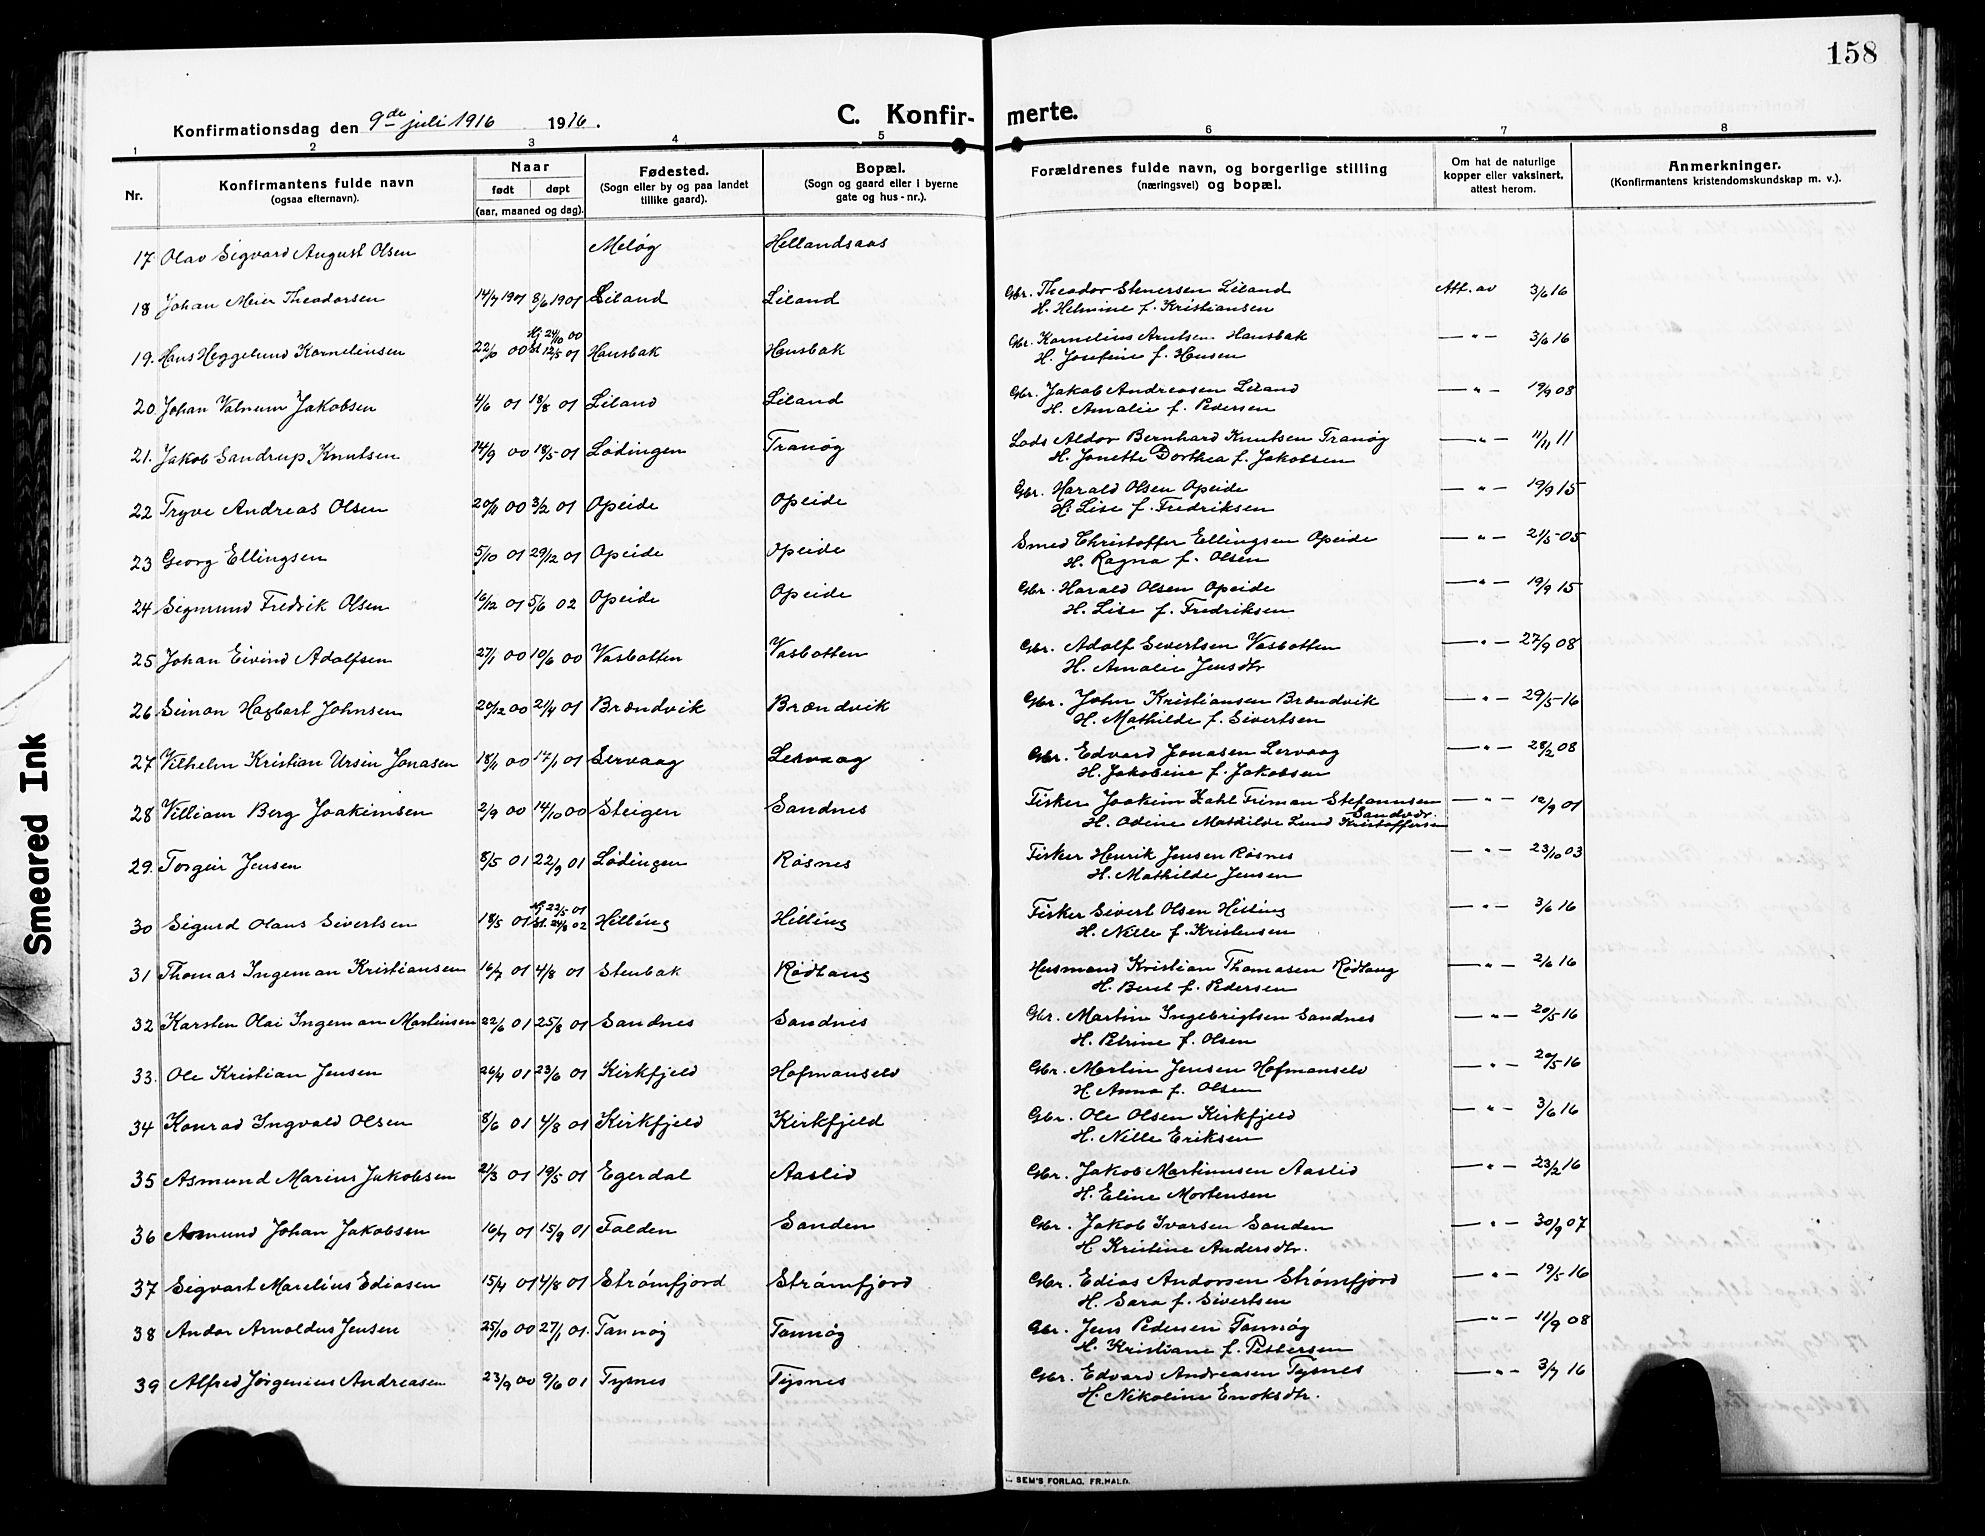 158
Konfirmationsdag den 9de juli 1916 1916.
C. Konfir-
merte.
1 2 3 4 5 6 7 8
Nr.
Konfirmantens fulde navn
(ogsaa efternavn).
Naar
født døpt
(aar, maaned og dag).
Fødested.
(Sogn eller by og paa landet
tillike gaard).
Bopæl.
(Sogn og gaard eller i byerne
gate og hus-nr.).
Forældrenes fulde navn, og borgerlige stilling
(næringsvei) og bopæl.
Om hat de naturlige
kopper eller vaksinert,
attest herom.
Anmerkninger.
(Konfirmantens kristendomskundskap m. v.).
17 Olav Sigvard August Olsen Meløg Hellandsaas
18 Johan Meier Theodorsen 14/7 1901 8/6 1901 Leland Leland Gbr. Theodor Stenersen Leland Att. av 3/6 16
H. Helmine f. Kristiansen
19. Hans Heggelund Kornelinsen 22/10 00 Hj 24/10 00 Hansbak Hansbak Gbr. Kornelius Arntsen Hansbak — " — 3/6 16
st 12/5 01
H. Josefine f. Hansen
20. Johan Valnum Jakobsen 4/6 01 18/8 01 Leland Leland Gbr. Jakob Andreasen Leland — " — 19/9 08
H. Amalie f. Pedersen
21. Jakob Sandrup Knutsen 14/9 00 18/5 01 Lødingen Tranøg Lods Aldor Bernhard Knutsen Tranøg — " — 11/11 11
H. Jonette Dorthea f. Jakobsen
22 Tryve Andreas Olsen 20/11 00 3/2 01 Opeide Opeide Gbr. Harald Olsen Opeide — " — 19/9 15
H. Lise f. Fredriksen
23 Georg Ellingsen 5/10 01 29/12 01 Opeide Opeide Smed Christoffer Ellingsen Opeide — " — 21/5-05
H. Ragna f. Olsen
24 Sigmund Fredrik Olsen 16/12 01 5/6 02 Opeide Opeide Gbr. Harald Olsen Opeide — " — 19/9 15
H. Lise f. Fredriksen
25 Johan Eivind Adolfsen 27/1 00 10/6 00 Vasbotten Vasbotten Gbr. Adolf Sivertsen Vasbotten — " — 27/9 08
H. Amalie Jensdtr
26 Simon Hagbart Johnsen 20/12 00 21/4 01 Brændvik Brændvik Gbr. John Kristiansen Brændvik — " — 29/5-16
H. Mathilde f. Sivertsen
27 Vilhelm Kristian Ursin Jonasen 18/11 00 17/1 01 Lervaag Lervaag Gbr. Edvard Jonasen Lervaag — " — 28/2 08
H. Jakobine f. Jakobsen
28 Villiam Berg Joakimsen 2/9 00 14/10 00 Steigen Sandnes Fisker Joakim Zahl Friman Stefannsen — " — 12/9 01
H. Odine Mathilde Lund Kristoffersen
29. Torgeir Jensen 8/5 01 22/9 01 Lødingen Røsnes Fisker Henrik Jensen Røsnes — " — 23/10 03
H. Mathilde Jensen
30 Sigurd Olaus Sivertsen 18/5 01 Hj 22/5 01 Helling Helling Fisker Sivert Olsen Helling — " — 3/6 16
H. Nille f. Kristensen
31 Thomas Ingeman Kristiansen 16/7 01 4/8 01 Stenbak Rødtang Husmand Kristian Thomasen Rødtang — " — 2/6 16
H. Beret f. Pedersen
32 Karsten Olai Ingeman Martinsen 22/6 01 25/8 01 Sandnes Sandnes Gbr. Martin Ingebrigtsen Sandnes — " — 20/5-16
H. Petrine f. Olsen
33. Ole Kristian Jensen 26/4 01 23/6 01 Kirkfjeld Hofmanselv Gbr. Martin Jensen Hofmanselv — " — 20/5-16
H Anna f. Olsen
34 Konrad Ingvald Olsen 8/6 01 4/8 01 Kirkfjeld Kirkfjeld Gbr. Ole Olsen Kirkfjeld — " — 3/6 16
H. Nille Eriksen
35 Asmund Marius Jakobsen 21/3 01 19/5 01 Egerdal Aaslid Gbr. Jakob Martinusen Aaslid — " — 23/2 16
H. Eline Mortensen
36 Asmund Johan Jakobsen 16/7 01 15/9 01 Falden Sanden Gbr. Jakob Ivarsen Sanden — " — 30/9 07
H Kristine Andersdtr.
37 Sigvart Marelius Ediasen 15/4 01 4/8 01 Strømfjord Strømfjord Gbr. Edias Andorsen Strømfjord — " — 19/5 16
H. Sara f. Sivertsen
38 Andor Arnoldus Jensen 25/10 00 27/1 01. Tannøg Tannøg Gbr. Jens Pedersen Tannøg — " — 11/9 08
H. Kristiane f. Pettersen
39 Alfred Jørgenius Andreasen 23/9 00 9/6 01 Tysnes Tysnes Gbr. Edvard Andreasen Tysnes — " — 3/7 16
H. Nikoline Enoksdtr.
SEM'S FORLAG. FR.HALD.
Smeared Ink